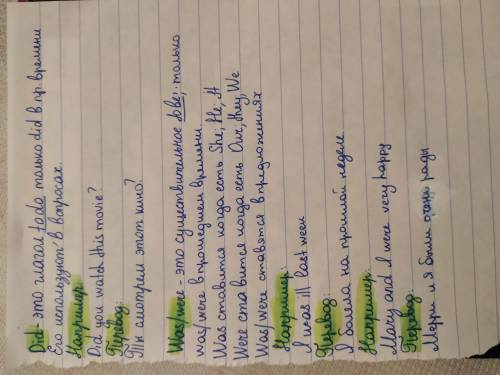 Did - это глагол to do только did в пр. времени
Его используют в вопросах.
Например:
Did you watch this movie?
Перевод:
Ты смотрел этот кино?
Was/were - это существительное to be; только
was/were в прошедшем времени.
Was ставится когда есть She, He, It
Were ставится когда есть Our, they, We
Was/were ставятся в предложениях
Например:
I was ill last week
Перевод:
Я болела на прошлой неделе
Например:
Mary and I were very happy
Перевод:
Мерри и я были очень рады